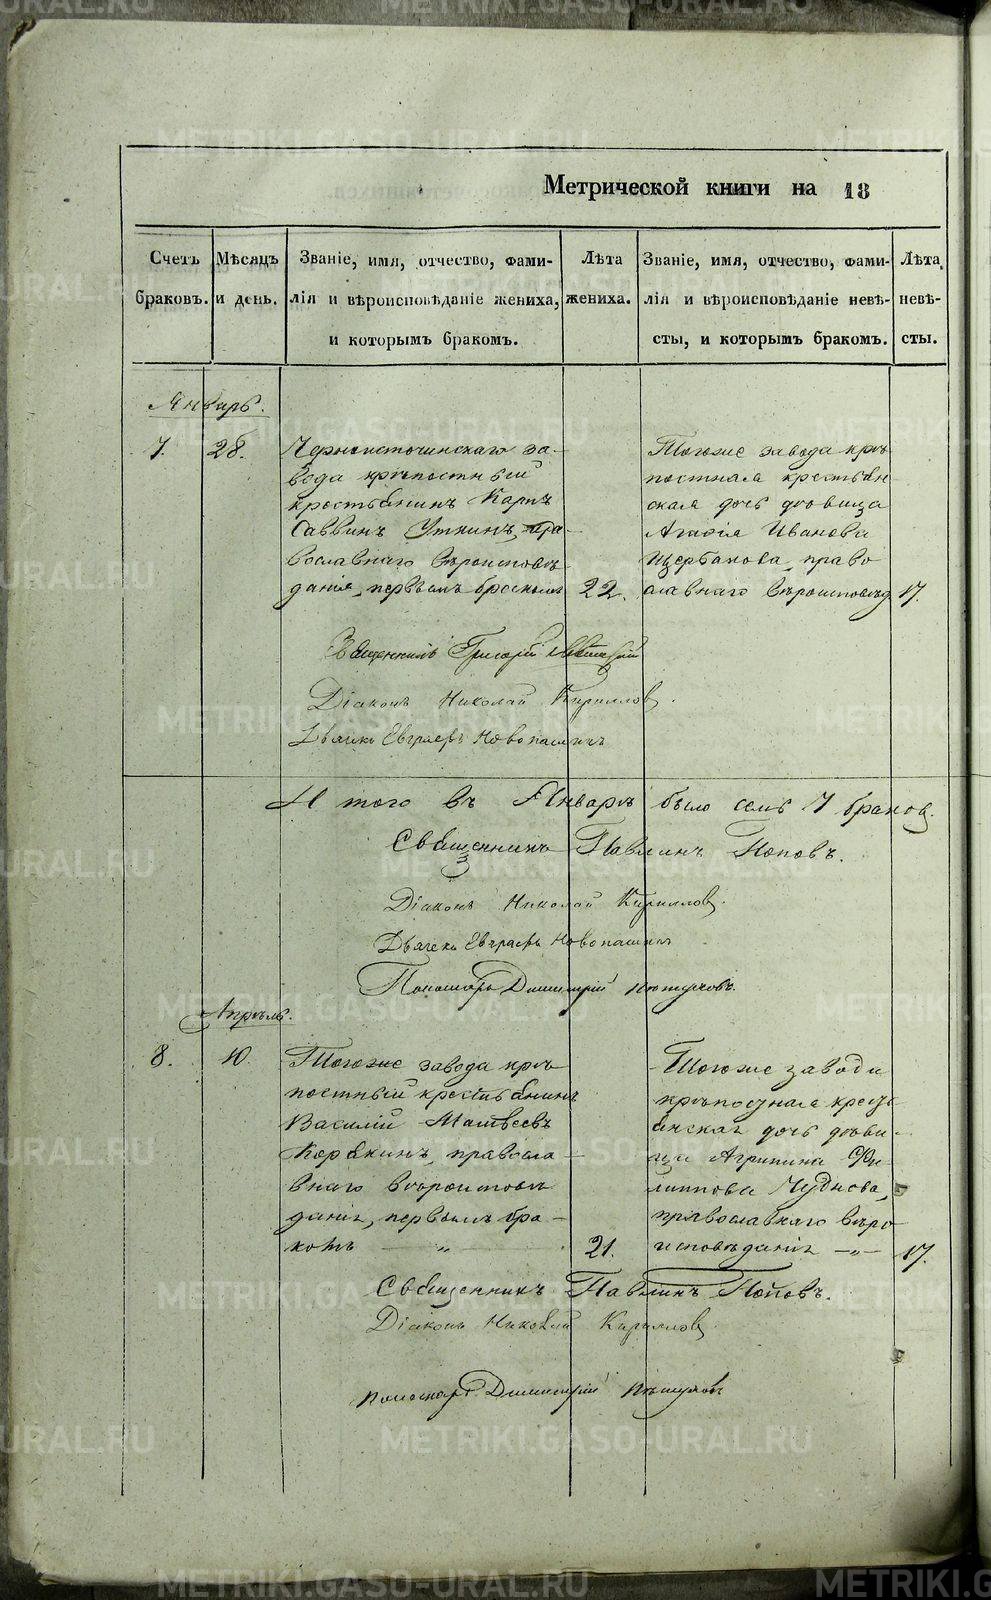 Метрической книги на 18
Счетъ браковъ.
Мѣсяцъ и день.
Званіе, имя, отчество, фами-
лія и вѣроисповѣданіе жениха,
и которымъ бракомъ.
Лѣта жениха.
Званіе, имя, отчество, фами-
лія и вѣроисповѣданіе невѣ-
сты, и которымъ бракомъ.
Лѣта невѣ-
сты.
Январь.
7. 28.
Черноисточинскаго за-
вода крѣпостный
крестьянинъ Карпъ
Саввинъ Уткинъ, пра-
вославнаго вѣроисповѣ
данія, первымъ бракомъ
22.
Тогоже завода крѣ
постная крестьян
ская дочь дѣвица
Агафія Иванова
Щербакова, право
славнаго вѣроисповѣд
17.
Священникъ Григорій
Діаконъ Николай Кирилловъ.
Дьячекъ Евграфъ Новопашинъ
И того въ Январѣ было семь 7 браковъ.
Священникъ Павлинъ Поповъ.
Діаконъ Николай Кирилловъ.
Дьячекъ Евграфъ Новопашинъ
Пономарь Димитрій Пѣтуховъ.
Апрѣль.
8. 10.
Тогоже завода крѣ
постный крестьянинъ
Василій Матвеевъ
Корякинъ, правосла-
внаго вѣроисповѣ
данія, первымъ бра-
комъ — „ —
21.
Тогоже завода
крѣпостная кресть
янская дочь дѣви-
ца Агрипина Фи-
липпова Чуднова,
православнаго вѣро-
исповѣданія — „ —
17.
Священникъ Павлинъ Поповъ.
Діаконъ Николай Кирилловъ.
Пономарь Димитрій Пѣтуховъ
METRIKI.GASO-URAL.RU